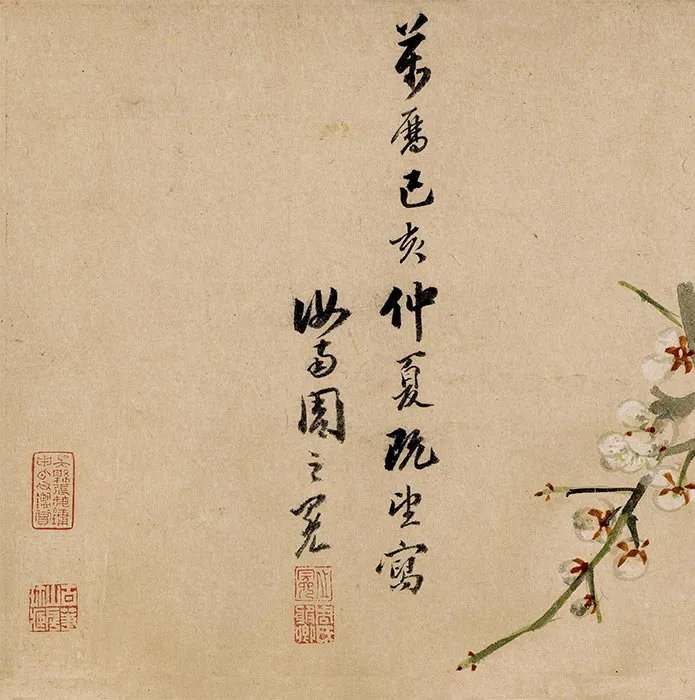 萬曆己亥仲夏既望寫
汝南周之冕